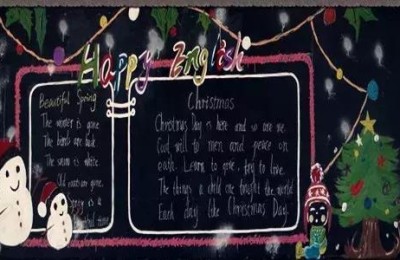 Happy English
Beautiful Spring
The winter is gone
The birds are back
The snow is white
Christmas
Christmas Day is here and so are we
God will to men and peace on
eath. Learn to give, try to love
The things a child one brought the world
Each day like Christmas Day